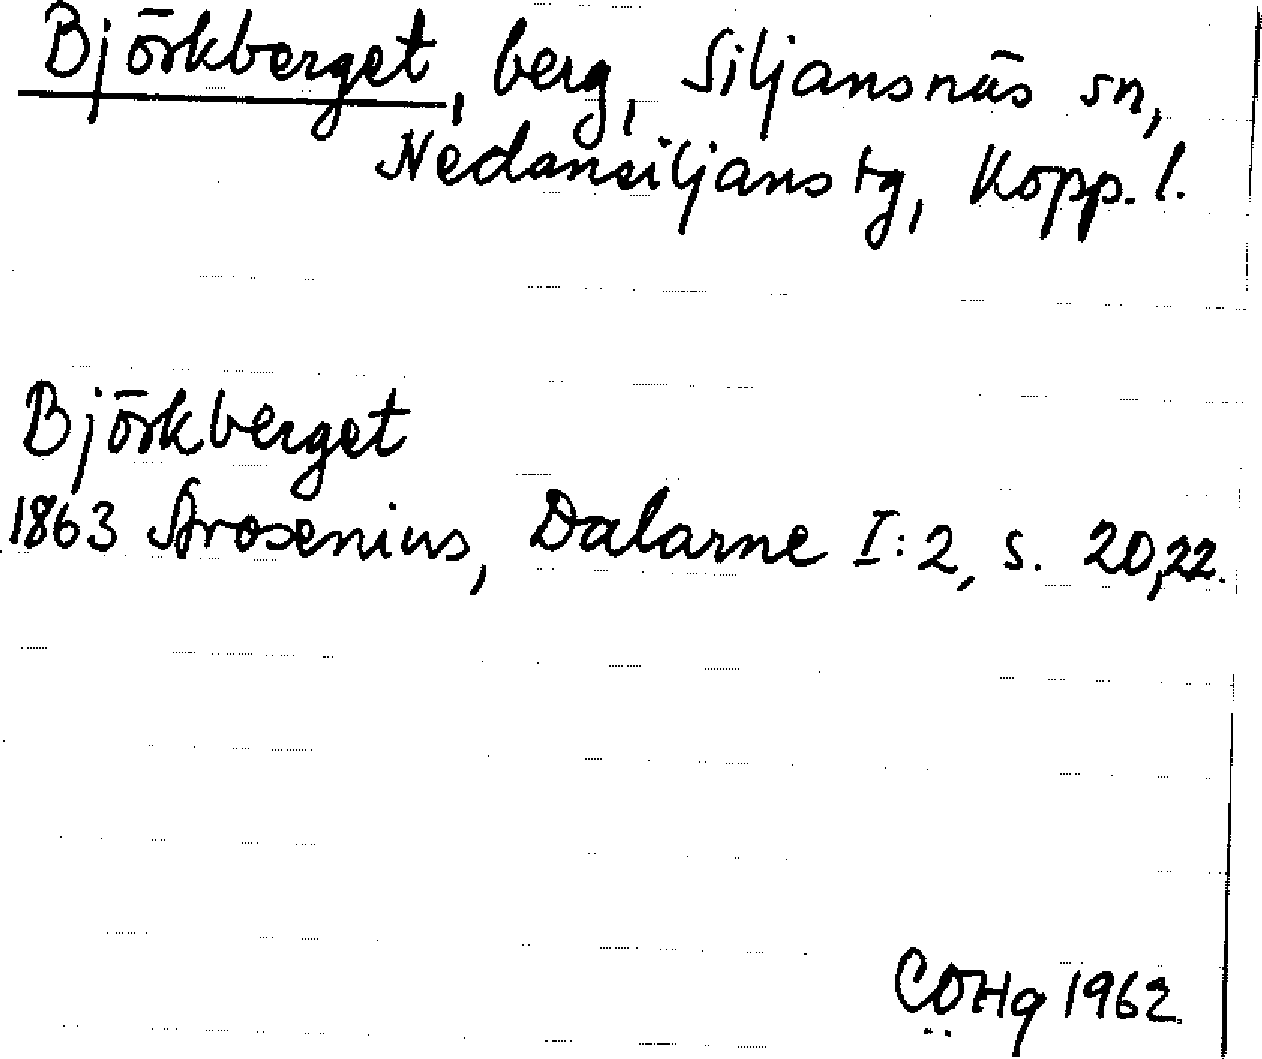 Björkberget, berg, Siljansnäs sn,
Nedansiljans tg, Kopp. l.
Björkberget
1863 Arosenius, Dalarne I:2, s. 20,22.
COHg 1962